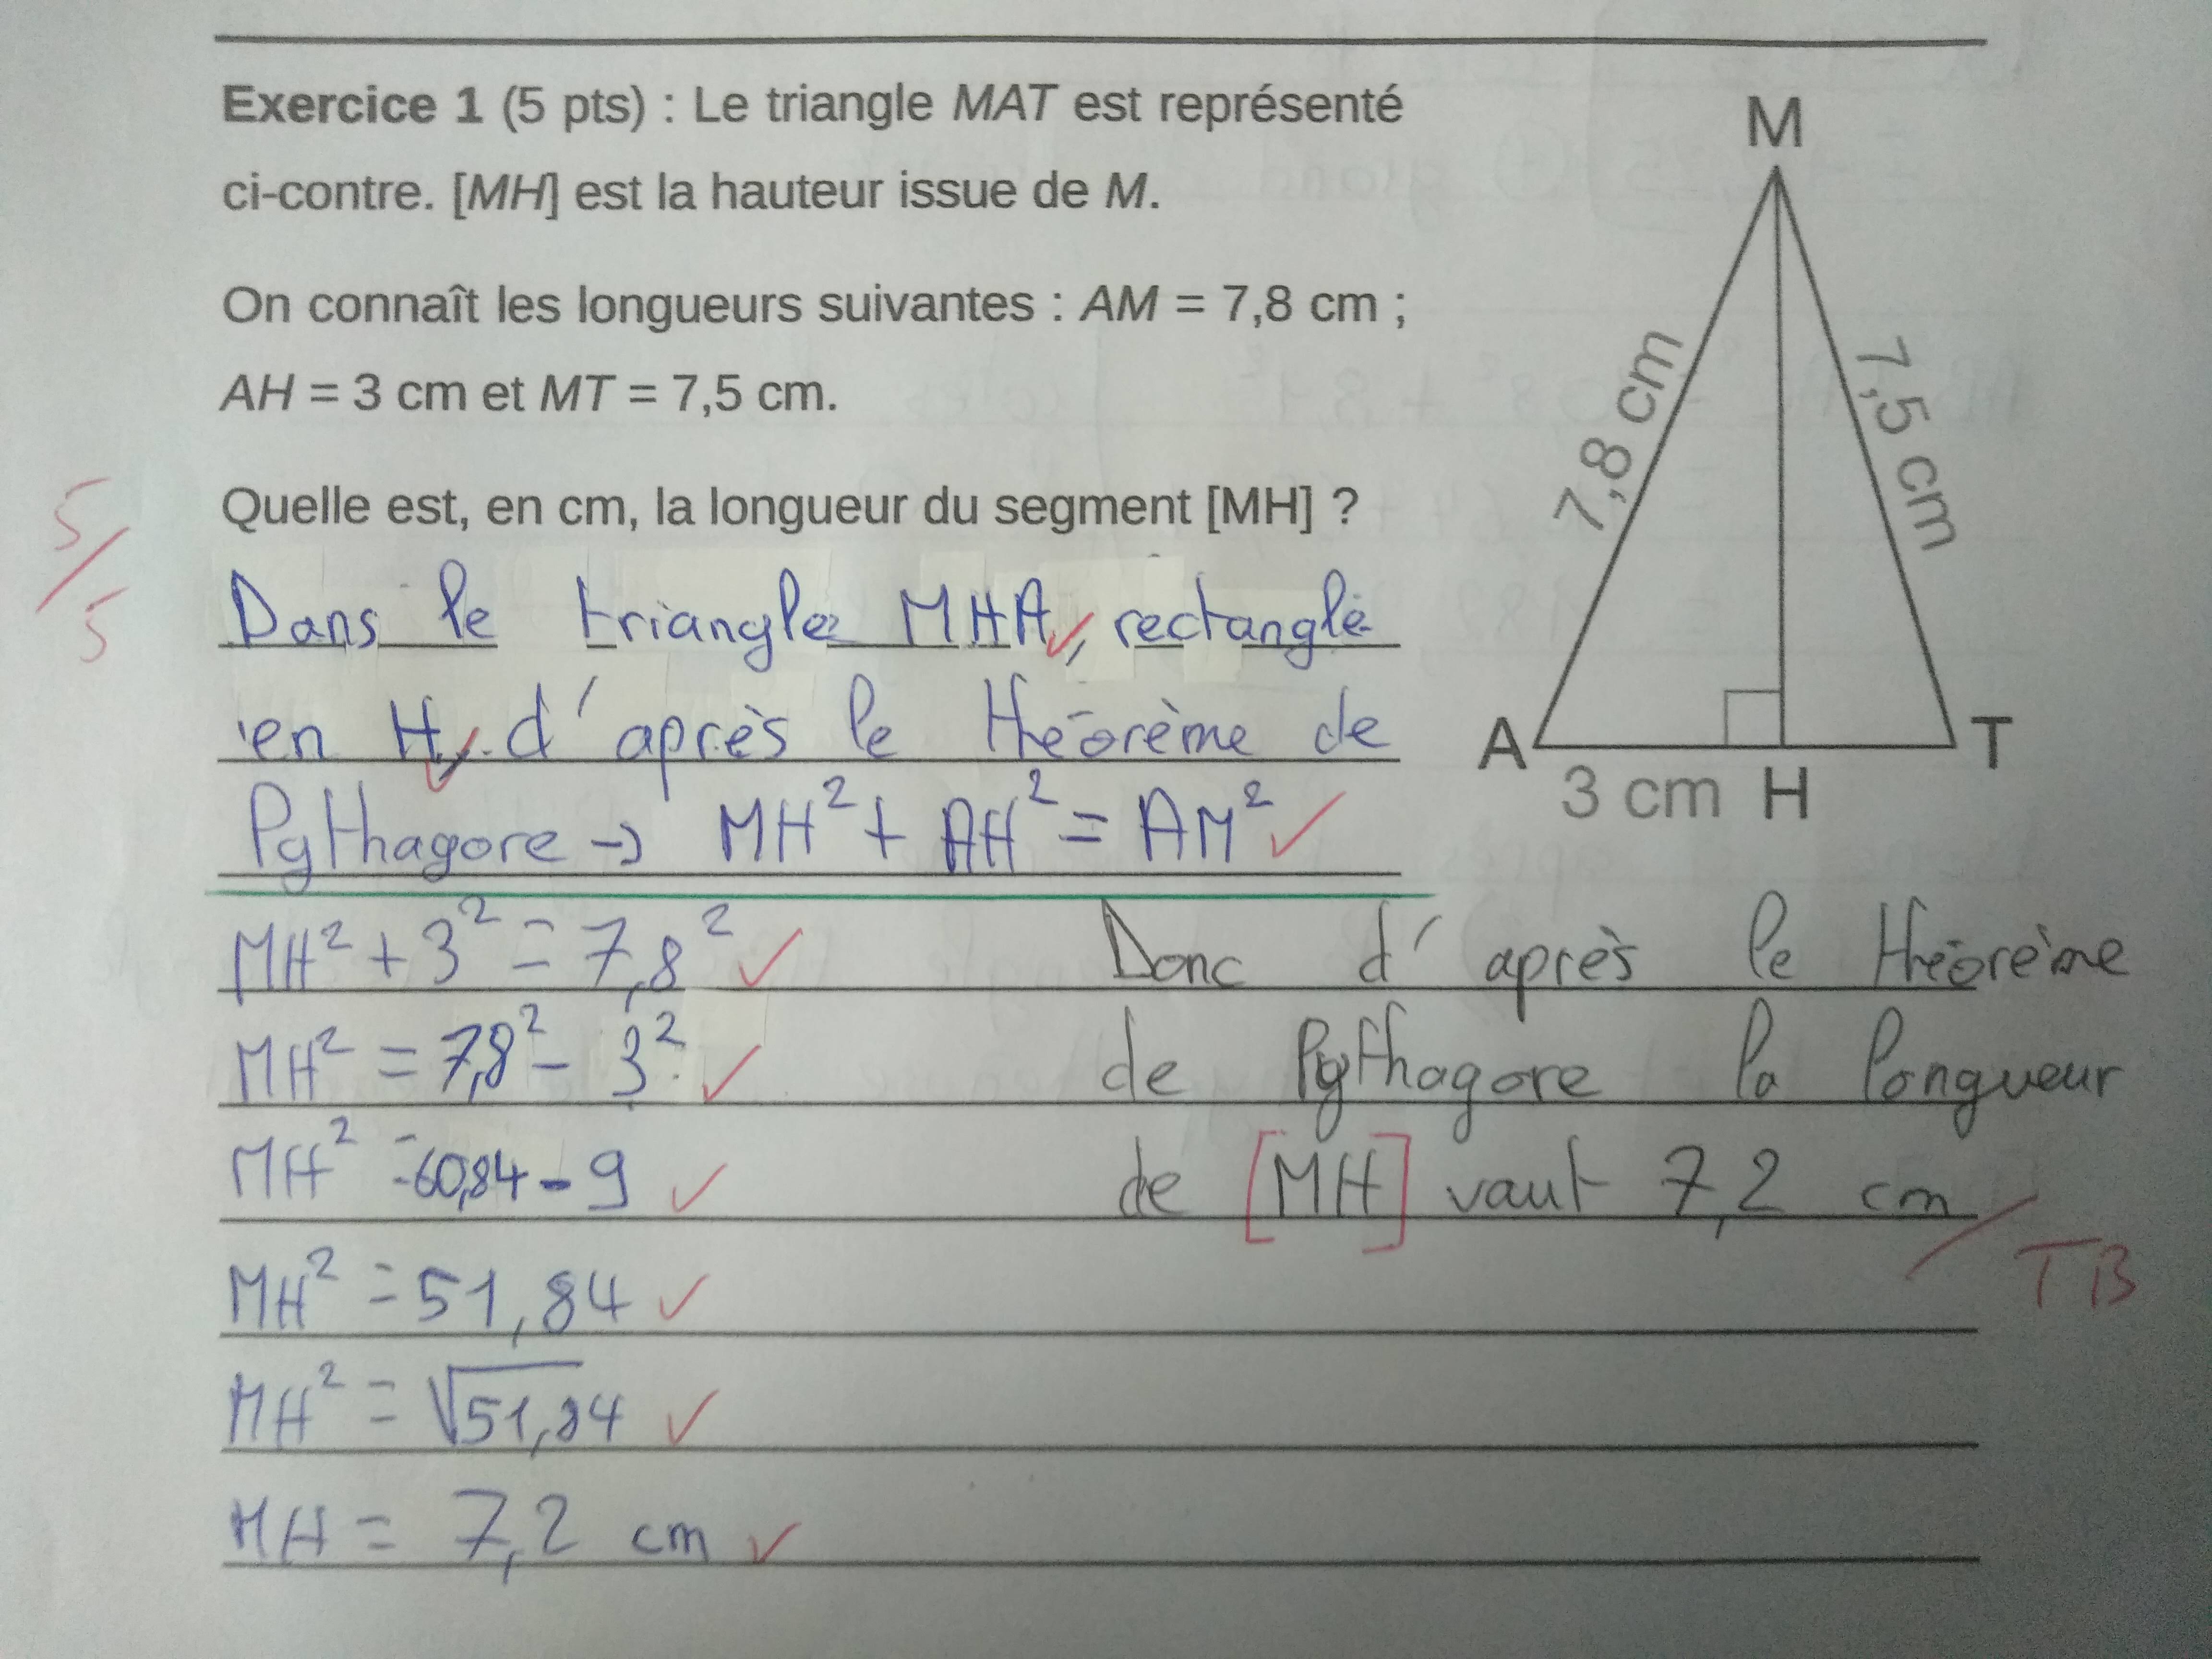 Exercice 1 (5 pts) : Le triangle MAT est représenté
ci-contre. [MH] est la hauteur issue de M.
On connaît les longueurs suivantes : AM = 7,8 cm ;
AH = 3 cm et MT = 7,5 cm.
Quelle est, en cm, la longueur du segment [MH] ?
M
7,8 cm
7,5 cm
A
3 cm
H
T
5/5
Dans le triangle MHA, rectangle
en H, d'après le théorème de
Pythagore → MH² + AH² = AM² ✓
MH² + 3² = 7,8² ✓
MH² = 7,8² - 3² ✓
MH² = 60,84 - 9 ✓
MH² = 51,84 ✓
MH² = √51,84 ✓
MH = 7,2 cm ✓
Donc d'après le théorème
de Pythagore la longueur
de [MH] vaut 7,2 cm
TB